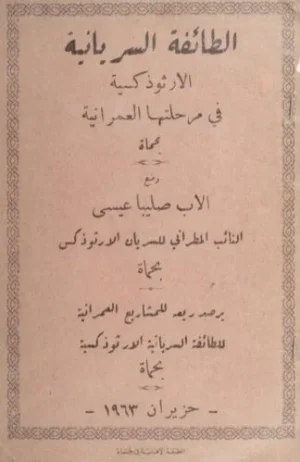 الطائفة السريانية
الارثوذكسية
في مرحلتها العمرانية
بحماة
وضع
الاب صليبا عيسى
النائب المطراني للسريان الارثوذكس
بحماة
يرصد ريعه للمشاريع العمرانية
للطائفة السريانية الارثوذكسية
بحماة
- حزيران ١٩٦٣ -